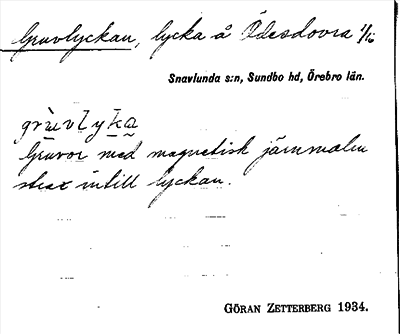 Gruvlyckan, lycka å Ödesdovra 1/16
Snavlunda s:n, Sundbo hd, Örebro län.
grùvlyka
Gruvor med magnetisk järnmalm
strax intill lyckan.
GÖRAN ZETTERBERG 1934.